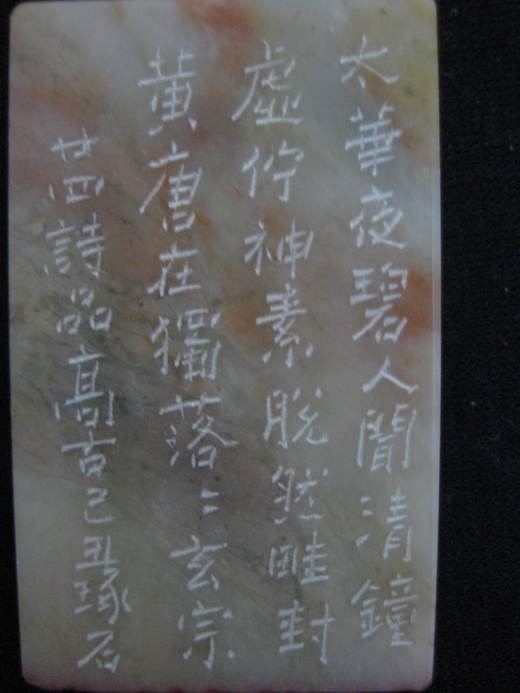 太華夜碧人聞清鐘
虛佇神素脱然畦封
黄唐在獨落〻玄宗
廿四詩品髙古己丑琢石